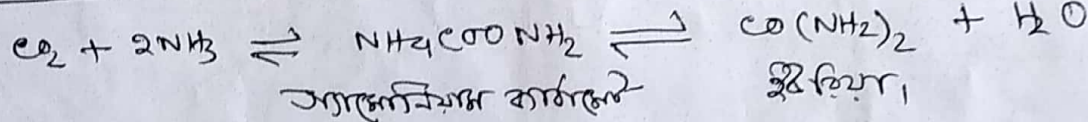 CO₂ + 2NH₃ ⇌ NH₄COONH₂ ⇌ CO(NH₂)₂ + H₂O
অ্যামোনিয়াম কার্বামেট ইউরিয়া,